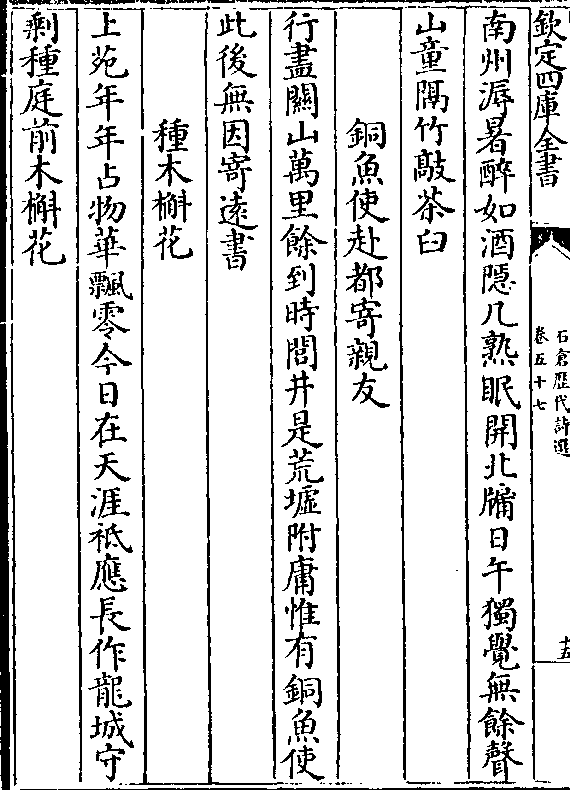 欽定四庫全書
石倉歷代詩選
卷五十七
十五
南州溽暑醉如酒隠几熟眠開北牖日午獨覺無餘聲
山童隔竹敲茶臼
銅魚使赴都寄親友
行盡關山萬里餘到時閭井是荒墟附庸惟有銅魚使
此後無因寄遠書
種木槲花
上苑年年占物華飄零今日在天涯祗應長作龍城守
剩種庭前木槲花